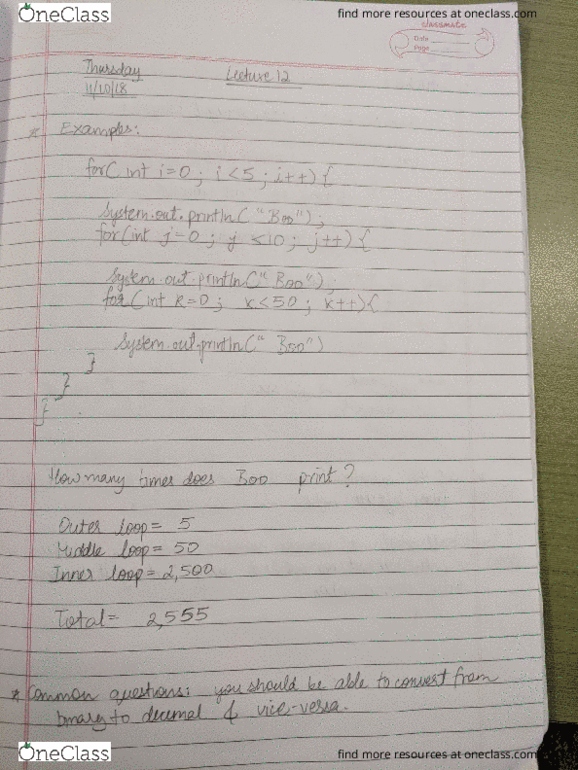 OneClass
find more resources at oneclass.com
classmate
Date
Page
Thursday
Lecture 12
11/10/18
* Examples:
for( int i=0 ; i<5 ; i++) {
System.out.println( "Boo");
for(int j=0 ; j <10 ; j++) {
System.out.println("Boo");
for( int k=0 ; k<50 ; k++){
System.out.println(" Boo")
}
}
}
How many times does Boo print?
Outer loop = 5
Middle loop = 50
Inner loop = 2,500
Total = 2,555
* Common questions: you should be able to convert from
binary to decemal & vice-versa.
OneClass
find more resources at oneclass.com